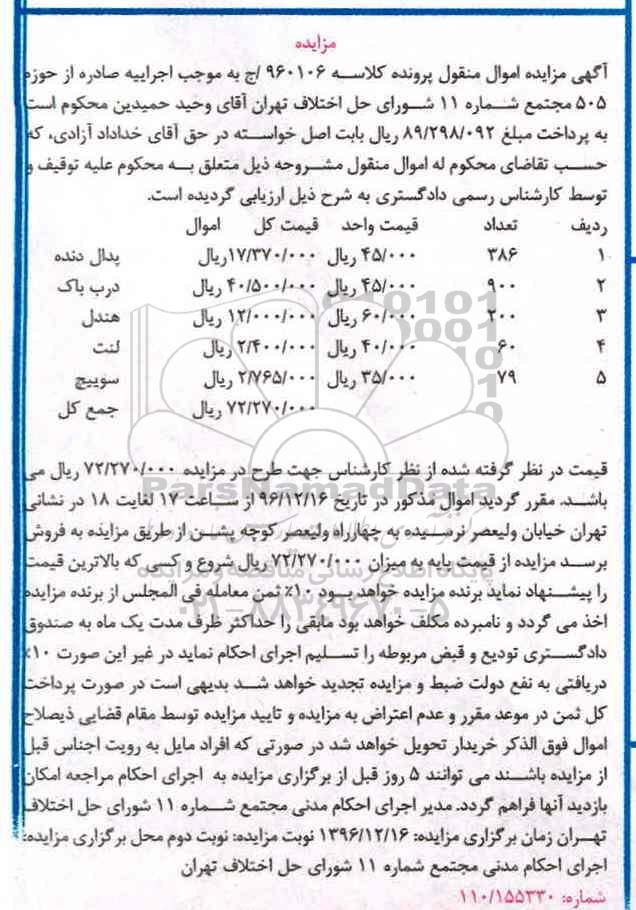 مزایده
آگهی مزایده اموال منقول پرونده کلاسه ۹۶۰۱۰۶ /ج به موجب اجراییه صادره از حوزه
۵۰۵ مجتمع شماره ۱۱ شورای حل اختلاف تهران آقای وحید حمیدین محکوم است
به پرداخت مبلغ ۸۹/۲۹۸/۰۹۲ ریال بابت اصل خواسته در حق آقای خداداد آزادی، که
حسب تقاضای محکوم له اموال منقول مشروحه ذیل متعلق به محکوم علیه توقیف و
توسط کارشناس رسمی دادگستری به شرح ذیل ارزیابی گردیده است.
ردیف تعداد قیمت واحد قیمت کل اموال
۱ ۳۸۶ ۴۵/۰۰۰ ریال ۱۷/۳۷۰/۰۰۰ریال پدال دنده
۲ ۹۰۰ ۴۵/۰۰۰ ریال ۴۰/۵۰۰/۰۰۰ ریال درب باک
۳ ۲۰۰ ۶۰/۰۰۰ ریال ۱۲/۰۰۰/۰۰۰ ریال هندل
۴ ۶۰ ۴۰/۰۰۰ ریال ۲/۴۰۰/۰۰۰ ریال لنت
۵ ۷۹ ۳۵/۰۰۰ ریال ۲/۷۶۵/۰۰۰ ریال سوییچ
۷۲/۲۷۰/۰۰۰ ریال جمع کل
قیمت در نظر گرفته شده از نظر کارشناس جهت طرح در مزایده ۷۲/۲۷۰/۰۰۰ ریال می
باشد. مقرر گردید اموال مذکور در تاریخ ۹۶/۱۲/۱۶از ساعت ۱۷ لغایت ۱۸ در نشانی
تهران خیابان ولیعصر نرسیده به چهارراه ولیعصر کوچه پشن از طریق مزایده به فروش
برسد مزایده از قیمت پایه به میزان ۷۲/۲۷۰/۰۰۰ ریال شروع و کسی که بالاترین قیمت
را پیشنهاد نماید برنده مزایده خواهد بود ۱۰٪ ثمن معامله فی المجلس از برنده مزایده
اخذ می گردد و نامبرده مکلف خواهد بود مابقی را حداکثر ظرف مدت یک ماه به صندوق
دادگستری تودیع و قبض مربوطه را تسلیم اجرای احکام نماید در غیر این صورت ۱۰٪
دریافتی به نفع دولت ضبط و مزایده تجدید خواهد شد بدیهی است در صورت پرداخت
کل ثمن در موعد مقرر و عدم اعتراض به مزایده و تایید مزایده توسط مقام قضایی ذیصلاح
اموال فوق الذکر خریدار تحویل خواهد شد در صورتی که افراد مایل به رویت اجناس قبل
از مزایده باشند می توانند ۵ روز قبل از برگزاری مزایده به اجرای احکام مراجعه امکان
بازدید آنها فراهم گردد. مدیر اجرای احکام مدنی مجتمع شماره ۱۱ شورای حل اختلاف
تهران زمان برگزاری مزایده: ۱۳۹۶/۱۲/۱۶ نوبت مزایده: نوبت دوم محل برگزاری مزایده:
اجرای احکام مدنی مجتمع شماره ۱۱ شورای حل اختلاف تهران
شماره: ۱۱۰/۱۵۵۳۳۰
ParsNamadData
پایگاه اطلاع رسانی مناقصه و مزایده
۰۲۱-۸۸۳۴۹۶۷۰-۵